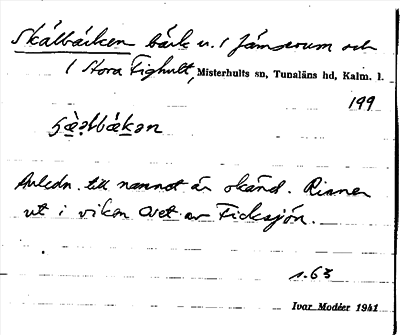 Skälbäcken bäck u. / Jämserum och
/ Stora Fighult, Misterhults sn, Tunaläns hd, Kalm. l.
199
Avledn. till namnet är okänd. Rinner
ut i viken av Ficksjön.
s. 63
Ivar Modéer 1941